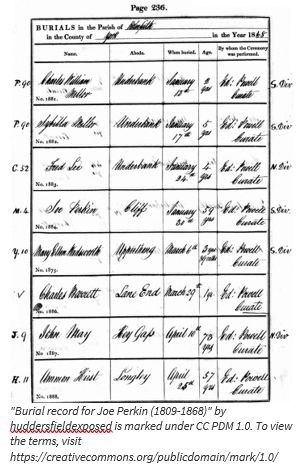 Page 236.
BURIALS in the Parish of
in the County of York in the Year 1868
Name. Abode. When buried. Age. By whom the Ceremony was performed.
P. 90 Charles William Mellor Underbank January 12th 2 yrs Ed: Powell Curate S. Div
No. 1881.
P. 90 Mellor Underbank January 17th 5 yrs Ed: Powell Curate S. Div
No. 1882.
C. 52 Ford Lee Underbank January 24th 4 yrs Ed: Powell Curate N. Div
No. 1883.
M. 4 Joe Perkin Cliff January 59 yrs Ed: Powell Curate S. Div
No. 1884.
Y. 10 Mary Ellen Wadsworth March 6th 3 yrs Ed: Powell Curate S. Div
No. 1875.
V Charles Lane End March 29th Ed: Powell Curate
No. 1886.
J. 9 John May Hey Gap April 10th 78 yrs Ed: Powell Curate N. Div
No. 1887.
H. 11 Hirst Longley April 25th 57 yrs Ed: Powell Curate
No. 1888.
"Burial record for Joe Perkin (1809-1868)" by
huddersfieldexposed is marked under CC PDM 1.0. To view
the terms, visit
https://creativecommons.org/publicdomain/mark/1.0/